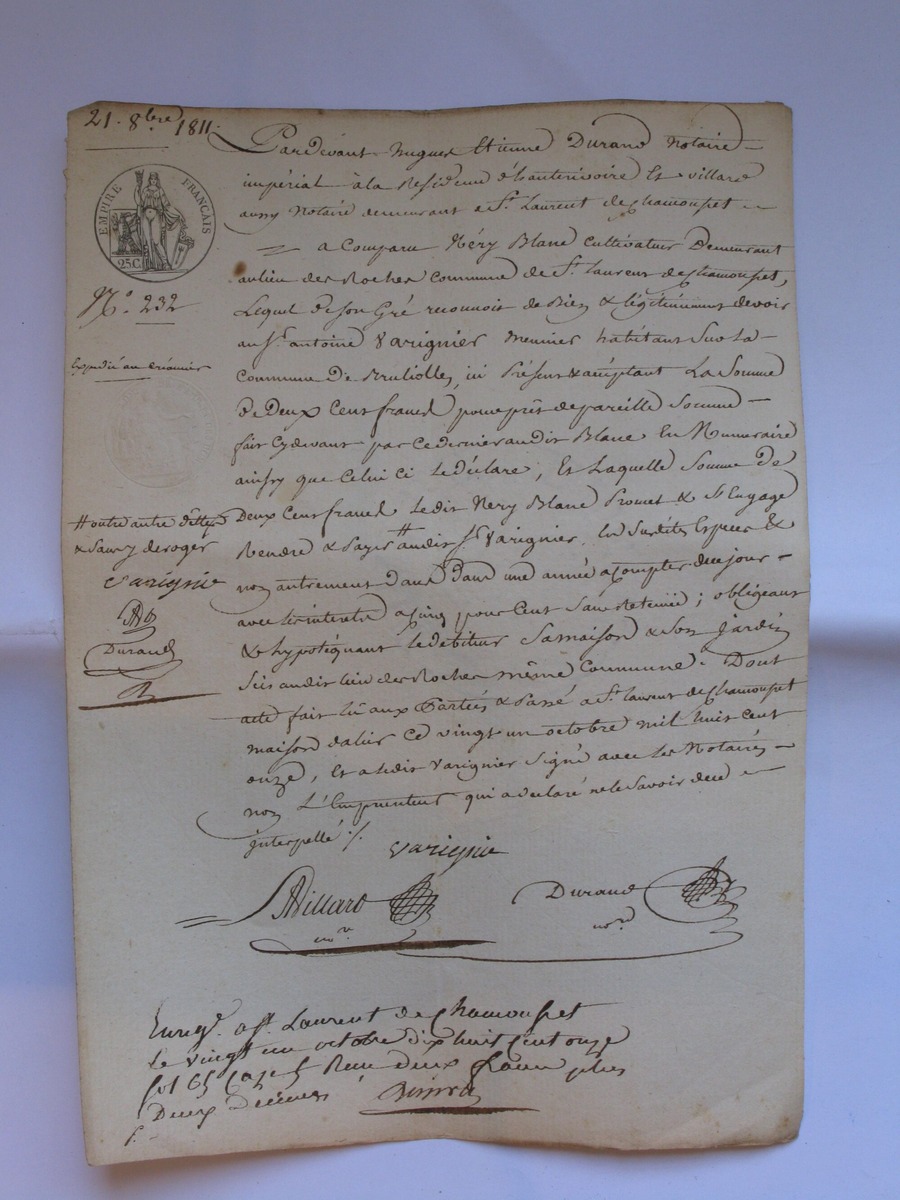 21. 8bre 1811.
EMPIRE FRANÇAIS
25 C.
N.o 232
Expédié au créancier
# outre autre dettes
& sans y deroger
Varignie
Durand
Pardevant hugues Etienne Durand Notaire
impérial à la Residence d'hauterivoire Et villard
aussy Notaire demeurant a St. Laurent de chamousset
a Comparu Néry Blanc Cultivateur Demeurant
au lieu des Roches Commune de St. Laurent de chamousset,
Lequel de son Gré reconnoit de Bien & légitimement devoir
au Sr. antoine Varignier meunier habitant sur la
Commune de Brullioles, ici Présent & acceptant La Somme
de Deux Cent francs pour prêt de pareille Somme
fait cydevant par ce dernier audit Blanc En Numéraire
ainsy que Celui ci le déclare ; Et Laquelle Somme de
Deux Cent francs ledit Néry Blanc Promet & S'Engage
Rendre & Payer # audit Sr. Varignier, En Susdites Espèces &
non autrement dans dans une année a Compter de ce jour
avec les interets a Cinq pour Cent Sans Retenue ; obligeant
& hypotéquant le débiteur Sa maison & Son Jardin
Sis au dit lieu des Roches même Commune. Dont
acte fait lû aux Parties & Passé a St. laurent de Chamousset
maison dalier Ce vingt un octobre mil huit Cent
onze, Et a ledit Varignier Signé avec les Notaires
non L'Emprunteur qui a déclaré ne le Savoir de ce
interpellé ./.
Varignie
Villard
Durand
nore
Enregé. a St. Laurent de Chamousset
le vingt un octobre dix huit Cent onze
fol 65 Case 5 Reçu deux francs plus
Deux Décimes